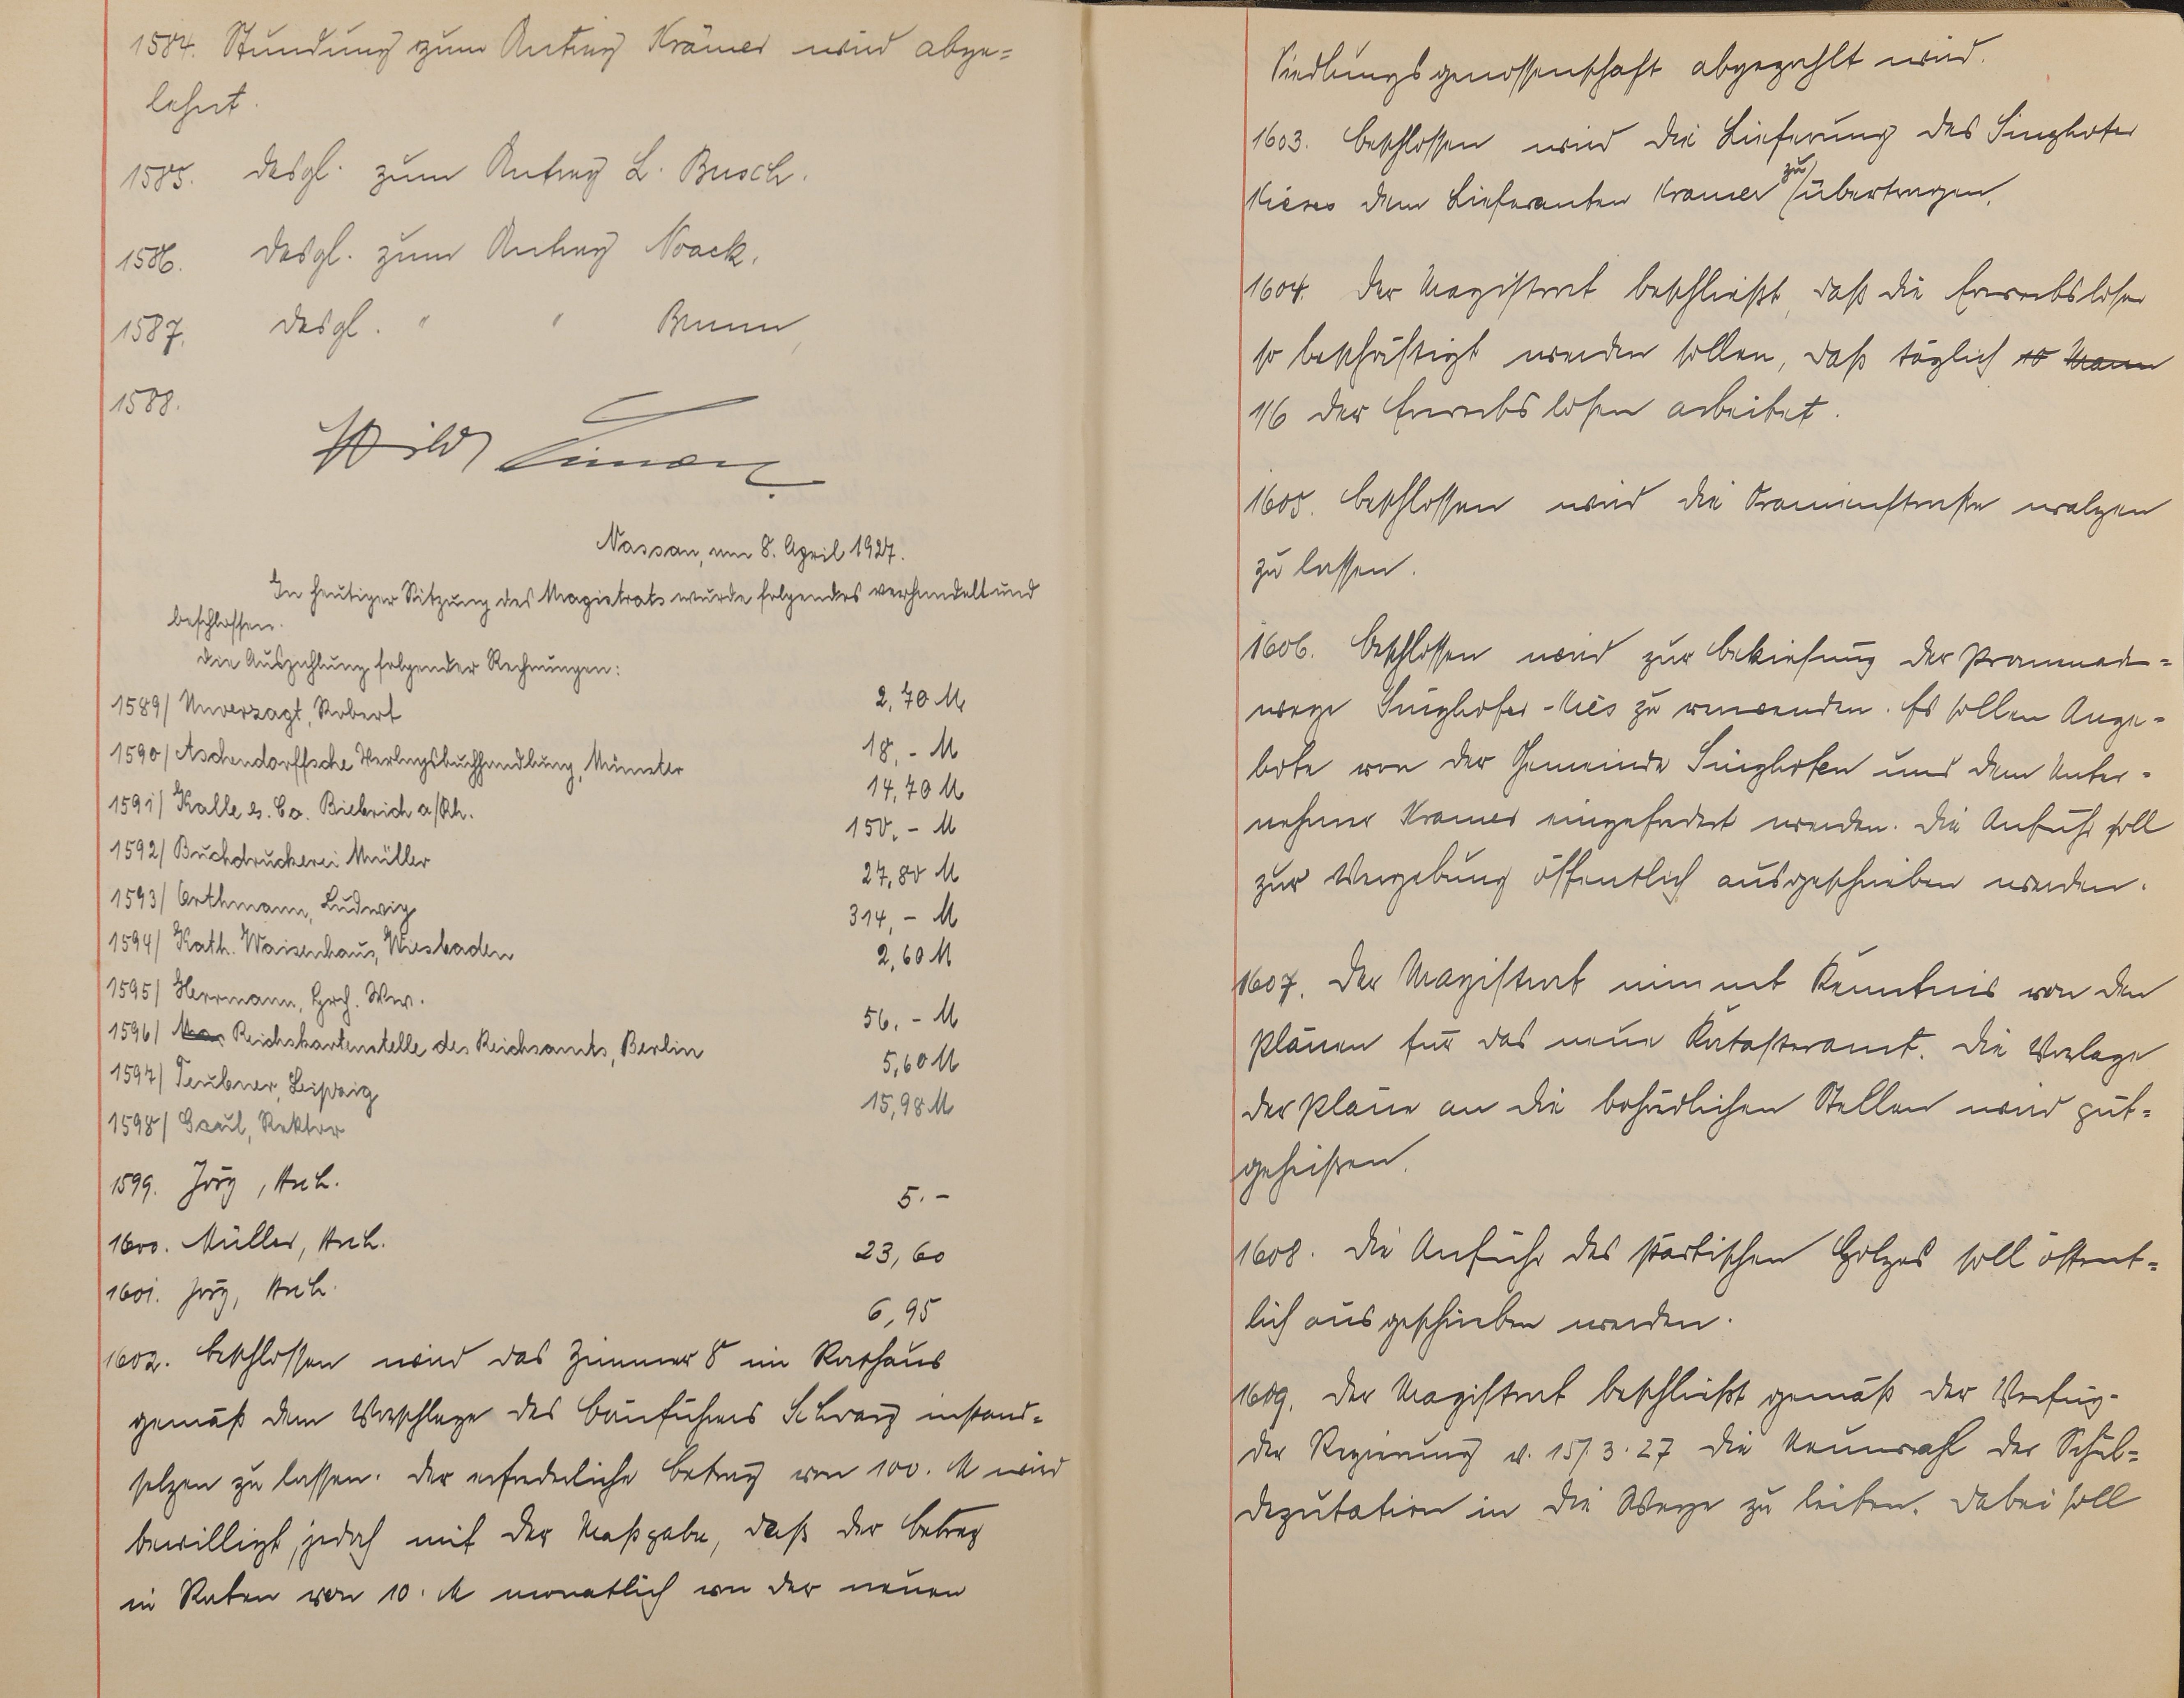 1584. Stundung zum Antrag Krämer wird abge=
lehnt.
1585. desgl. zum Antrag L. Busch.
1586. desgl. zum Antrag Noack.
1587. desgl. " "
1588.
Nassau, am 8. April 1927.
In heutiger Sitzung des Magistrats wurde folgendes verhandelt und
beschlossen.
Die Auszahlung folgender Rechnungen:
1589/ Unverzagt, Robert 2,70 M
1590/ Aschendorffsche Verlagsbuchhandlung, Münster 18,- M
1591/ Kalle & Co. Biebrich a/Rh. 14,70 M
1592/ Buchdruckerei Müller 150,- M
1593/ Orthmann, Ludwig 27,80 M
1594/ Kath. Waisenhaus, Wiesbaden 314,- M
1595/ Herrmann, Hch. Ww. 2,60 M
1596/ Reichskartenstelle des Reichsamts, Berlin 56,- M
1597/ Teubner, Leipzig 5,60 M
1598/ Rektor 15,98 M
1599. Jörg, 5.-
1600. Müller, 23,60
1601. Jörg, 6,95
1602. Beschlossen wird das Zimmer 8 im Rathaus
gemäß dem Vorschlage des Bauführers Schwarz instand=
setzen zu lassen. Der erforderliche Betrag von 100. M wird
bewilligt, jedoch mit der Maßgabe, daß der Betrag
in Raten von 10. M monatlich von der neuen
Siedlungsgenossenschaft abgezahlt wird.
1603. Beschlossen wird die Lieferung des Singhofer
Kieses dem Lieferanten Kramer zu übertragen.
1604. Der Magistrat beschließt, daß die Erwerbslosen
so beschäftigt werden sollen, daß täglich 10 Mann
1/6 der Erwerbslosen arbeitet.
1605. Beschlossen wird die Oranienstraße walzen
zu lassen.
1606. Beschlossen wird zur Bekiesung der Promenade=
wege Singhofer-Kies zu verwenden. Es sollen Ange=
bote von der Gemeinde Singhofen und dem Unter=
nehmer Kramer eingefordert werden. Die Anfuhr soll
zur Vergebung öffentlich ausgeschrieben werden.
1607. Der Magistrat nimmt Kenntnis von den
Plänen für das neue Katasteramt. Die Vorlage
der Pläne an die behördlichen Stellen wird gut=
geheißen.
1608. Die Anfuhr des städtischen Holzes soll öffent=
lich ausgeschrieben werden.
1609. Der Magistrat beschließt gemäß der Verfüg.
der Regierung v. 15/3.27 die Neuwahl der Schul=
deputation in die Wege zu leiten. Dabei soll